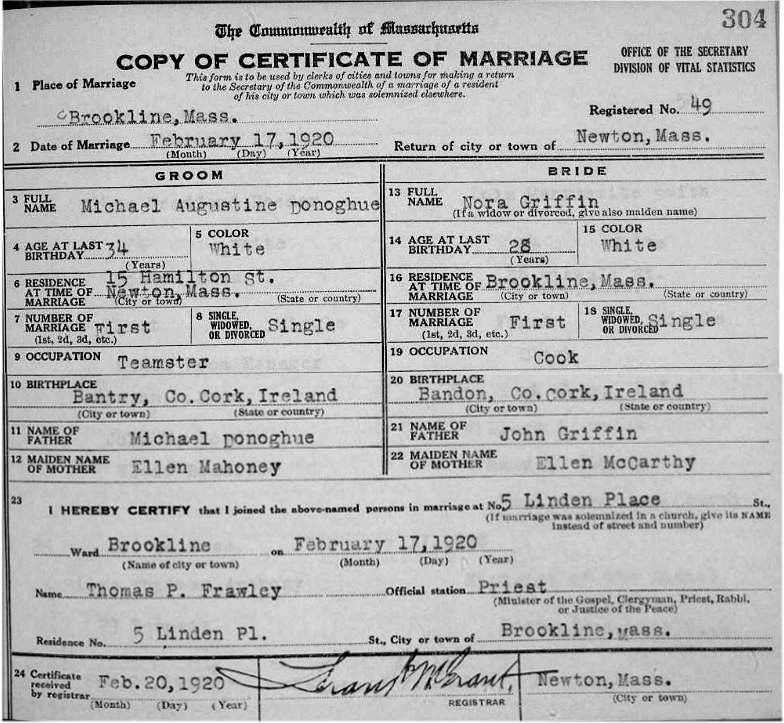 304
The Commonwealth of Massachusetts
COPY OF CERTIFICATE OF MARRIAGE
OFFICE OF THE SECRETARY
DIVISION OF VITAL STATISTICS
This form is to be used by clerks of cities and towns for making a return
to the Secretary of the Commonwealth of a marriage of a resident
of his city or town which was solemnized elsewhere.
1 Place of Marriage
Brookline, Mass.
Registered No. 49
2 Date of Marriage February 17, 1920
(Month) (Day) (Year)
Return of city or town of Newton, Mass.
GROOM
3 FULL NAME Michael Augustine Donoghue
4 AGE AT LAST BIRTHDAY 34
(Years)
5 COLOR
White
6 RESIDENCE AT TIME OF MARRIAGE 15 Hamilton St.
Newton, Mass.
(City or town) (State or country)
7 NUMBER OF MARRIAGE First
(1st, 2d, 3d, etc.)
8 SINGLE, WIDOWED, OR DIVORCED Single
9 OCCUPATION
Teamster
10 BIRTHPLACE
Bantry, Co. Cork, Ireland
(City or town) (State or country)
11 NAME OF FATHER Michael Donoghue
12 MAIDEN NAME OF MOTHER Ellen Mahoney
BRIDE
13 FULL NAME Nora Griffin
(If a widow or divorced, give also maiden name)
14 AGE AT LAST BIRTHDAY 28
(Years)
15 COLOR
White
16 RESIDENCE AT TIME OF MARRIAGE Brookline, Mass.
(City or town) (State or country)
17 NUMBER OF MARRIAGE First
(1st, 2d, 3d, etc.)
18 SINGLE, WIDOWED, OR DIVORCED Single
19 OCCUPATION
Cook
20 BIRTHPLACE
Bandon, Co.cork, Ireland
(City or town) (State or country)
21 NAME OF FATHER John Griffin
22 MAIDEN NAME OF MOTHER Ellen McCarthy
23
I HEREBY CERTIFY that I joined the above-named persons in marriage at No. 5 Linden Place St.,
(If marriage was solemnized in a church, give its NAME
instead of street and number)
Ward Brookline on February 17, 1920
(Name of city or town) (Month) (Day) (Year)
Name Thomas P. Frawley Official station Priest
(Minister of the Gospel, Clergyman, Priest, Rabbi,
or Justice of the Peace)
Residence No. 5 Linden Pl. St., City or town of Brookline, Mass.
24 Certificate received by registrar Feb. 20, 1920
(Month) (Day) (Year)
Frank M. Grant,
REGISTRAR
Newton, Mass.
(City or town)